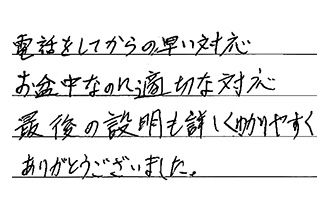 電話をしてからの早い対応
お盆中なのに適切な対応
最後の説明も詳しくわかりやすく
ありがとうございました。